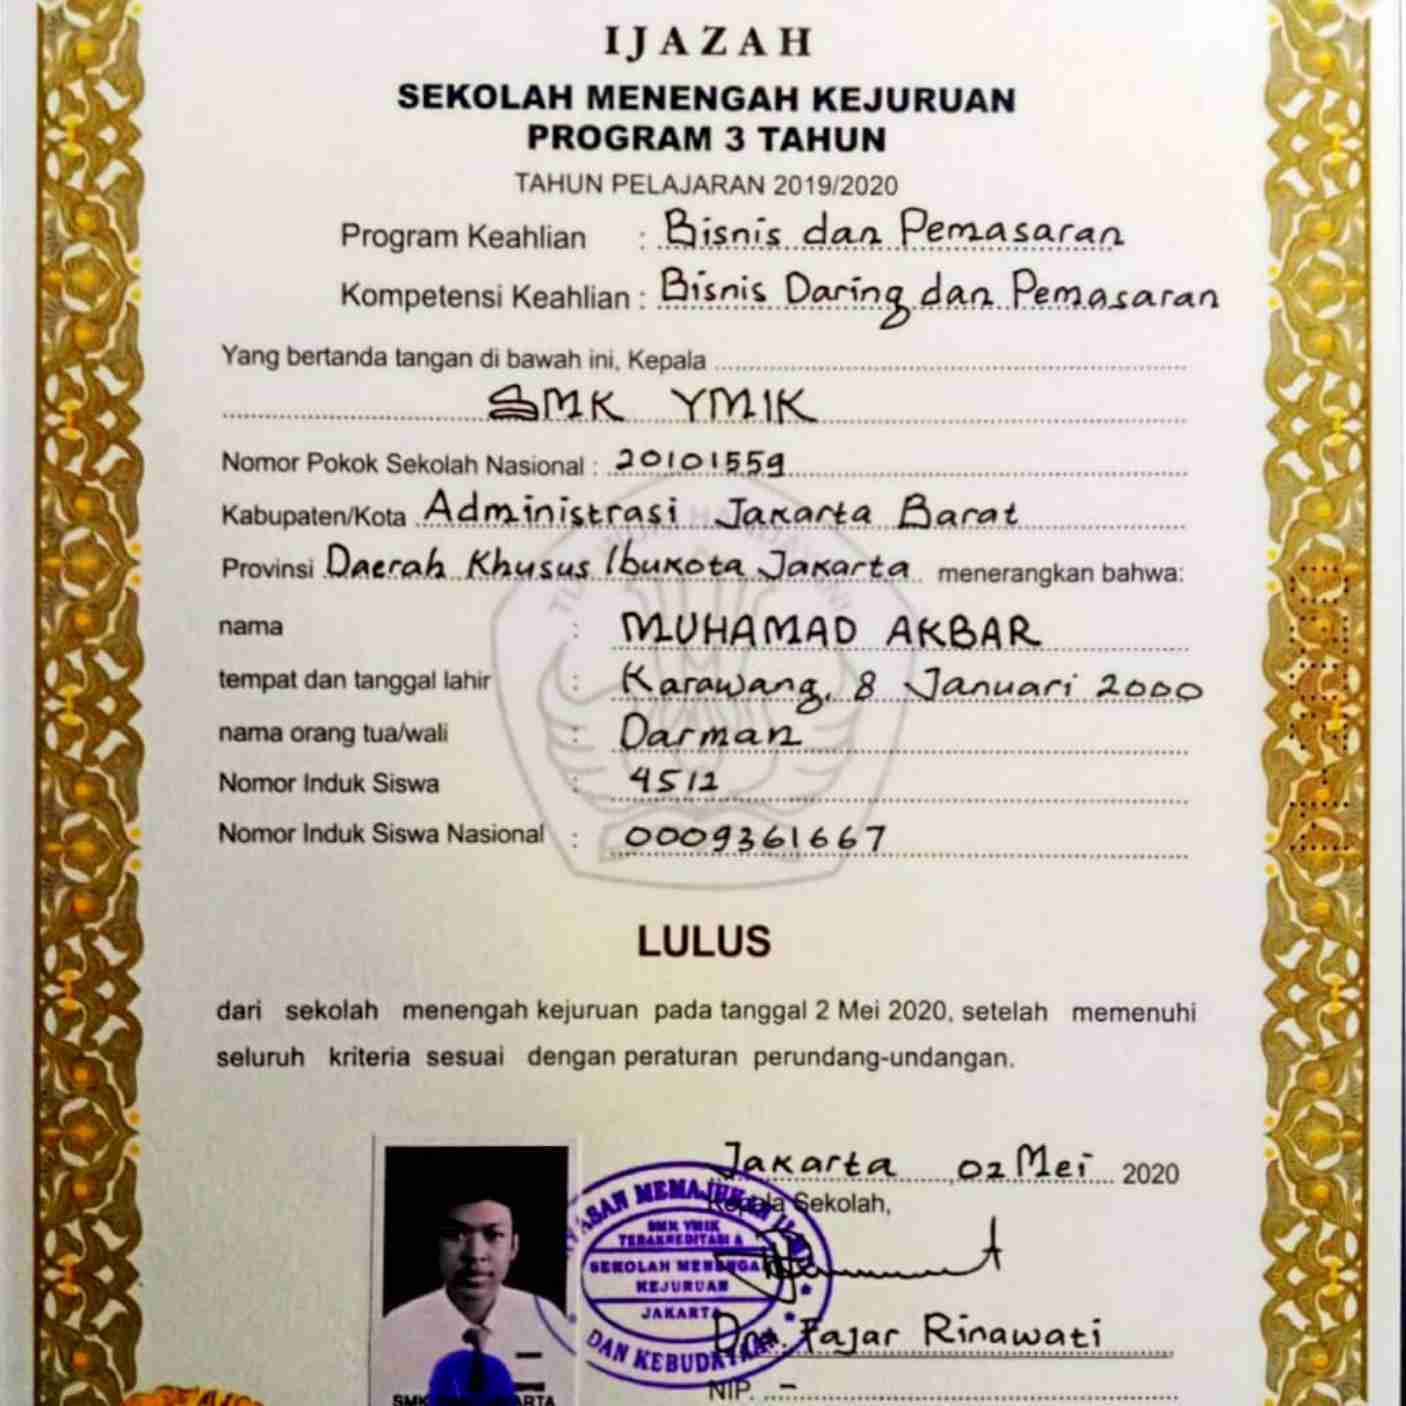 IJAZAH
SEKOLAH MENENGAH KEJURUAN
PROGRAM 3 TAHUN
TAHUN PELAJARAN 2019/2020
Program Keahlian : Bisnis dan Pemasaran
Kompetensi Keahlian : Bisnis Daring dan Pemasaran
Yang bertanda tangan di bawah ini, Kepala
SMK YMIK
Nomor Pokok Sekolah Nasional : 20101559
Kabupaten/Kota Administrasi Jakarta Barat
Provinsi Daerah Khusus Ibukota Jakarta menerangkan bahwa:
nama : MUHAMAD AKBAR
tempat dan tanggal lahir : Karawang, 8 Januari 2000
nama orang tua/wali : Darman
Nomor Induk Siswa : 4512
Nomor Induk Siswa Nasional : 0009361667
LULUS
dari sekolah menengah kejuruan pada tanggal 2 Mei 2020, setelah memenuhi
seluruh kriteria sesuai dengan peraturan perundang-undangan.
Jakarta, 02 Mei 2020
Kepala Sekolah,
YAYASAN MEMAJUKAN
SMK YMIK
TERAKREDITASI A
SEKOLAH MENENGAH
KEJURUAN
JAKARTA
DAN KEBUDAYAAN
Dra. Fajar Rinawati
NIP. -
SMK